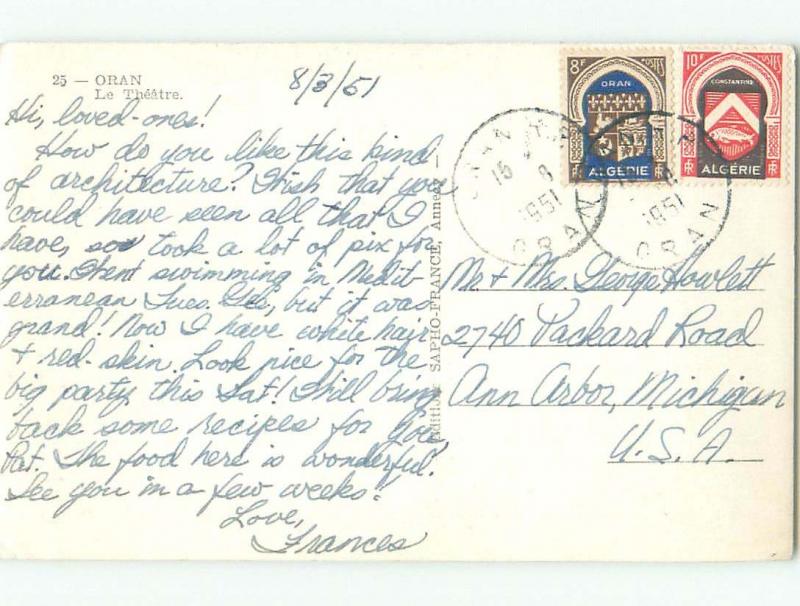 25 — ORAN
Le Théâtre.
8/3/51
Hi, loved-ones!
How do you like this kind
of architecture? Wish that you
could have seen all that I
have, so took a lot of pix for
you. Went swimming in Medit-
erranean Tues. Gee, but it was
grand! Now I have white hair
+ red-skin. Look nice for the
big party this Sat! Will bring
back some recipes for you,
Pat. The food here is wonderful.
See you in a few weeks!
Love,
Frances
Editions SAPHO-FRANCE, Annecy —
8F POSTES
ORAN
ALGÉRIE
10F POSTES
CONSTANTINE
ALGÉRIE
ORAN
15
8
1951
ORAN
8
1951
ORAN
Mr. + Mrs. George Howlett
2740 Packard Road
Ann Arbor, Michigan
U.S.A.